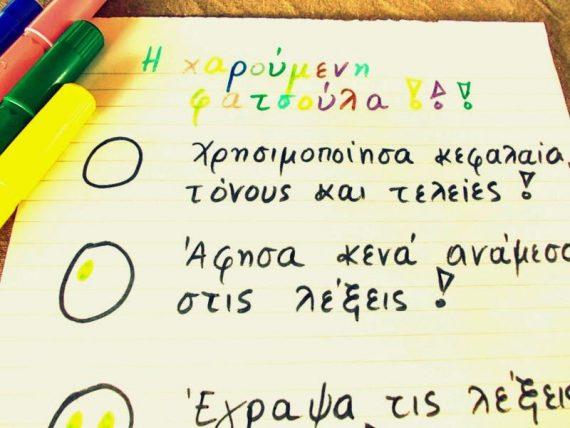 Η χαρούμενη
φατσούλα !!!
Χρησιμοποίησα κεφαλαία,
τόνους και τελείες !
Άφησα κενά ανάμεσα
στις λέξεις !
Έγραψα τις λέξεις